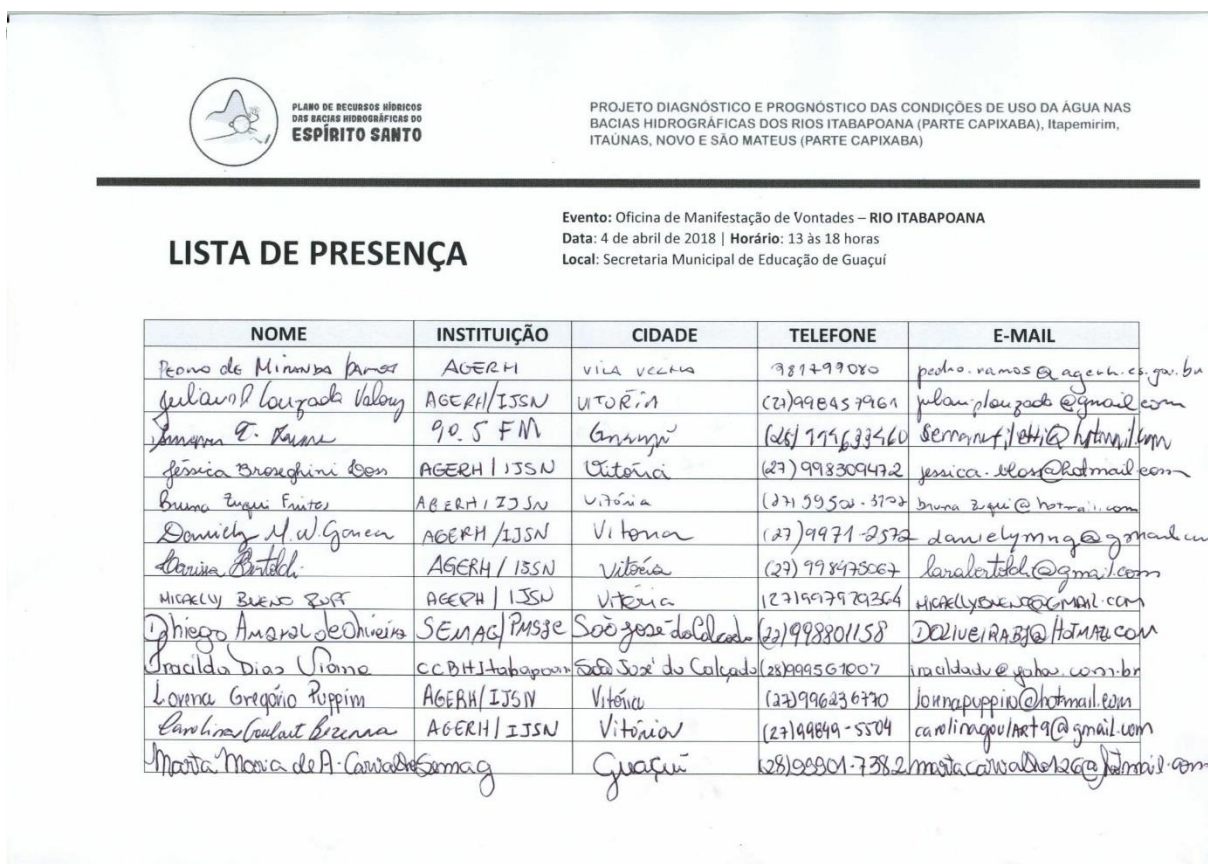 PLANO DE RECURSOS HÍDRICOS
DAS BACIAS HIDROGRÁFICAS DO
ESPÍRITO SANTO
PROJETO DIAGNÓSTICO E PROGNÓSTICO DAS CONDIÇÕES DE USO DA ÁGUA NAS
BACIAS HIDROGRÁFICAS DOS RIOS ITABAPOANA (PARTE CAPIXABA), Itapemirim,
ITAÚNAS, NOVO E SÃO MATEUS (PARTE CAPIXABA)
LISTA DE PRESENÇA
Evento: Oficina de Manifestação de Vontades – RIO ITABAPOANA
Data: 4 de abril de 2018 | Horário: 13 às 18 horas
Local: Secretaria Municipal de Educação de Guaçuí
NOME INSTITUIÇÃO CIDADE TELEFONE E-MAIL
Pedro de Miranda AGERH VILA VELHA 981799080 pedro.ramos@agerh.es.gov.br
Louzada AGERH/IJSN VITÓRIA (27)998457961
90.5 FM
Jéssica Broseghini AGERH/IJSN Vitória (27)998309472
Bruna Zuqui Freitas AGERH/IJSN Vitória bruna zuqui@hotmail.com
Daniely M. W. AGERH/IJSN Vitoria (27)9971-2572 danielymng@gmail
Bertoldi AGERH/IJSN Vitória (27) 998475067 larabertoldi@gmail.com
MICAELLY BUENO AGERH/IJSN Vitória (27)997979364 MICAELLYBUENO@GMAIL.COM
Dhiego Amaral de Oliveira SEMAG/PMSJC São José do Calçado 998801158 DOLIVEIRABJ@HOTMAIL.COM
Iracilda Dias Viana CCBHItabapoan São José do Calçado (28)999561007 iracildadv@yahoo.com.br
Lorena Gregório Puppim AGERH/IJSN Vitória (27)996236770
Carolina Goulart Bezerra AGERH/IJSN Vitória (27)99849-5504 carolinagoulart9@gmail.com
Marta Maria de A. Carvalho Semag Guaçuí (28)99901-7382 martacarvalho126@hotmail.com